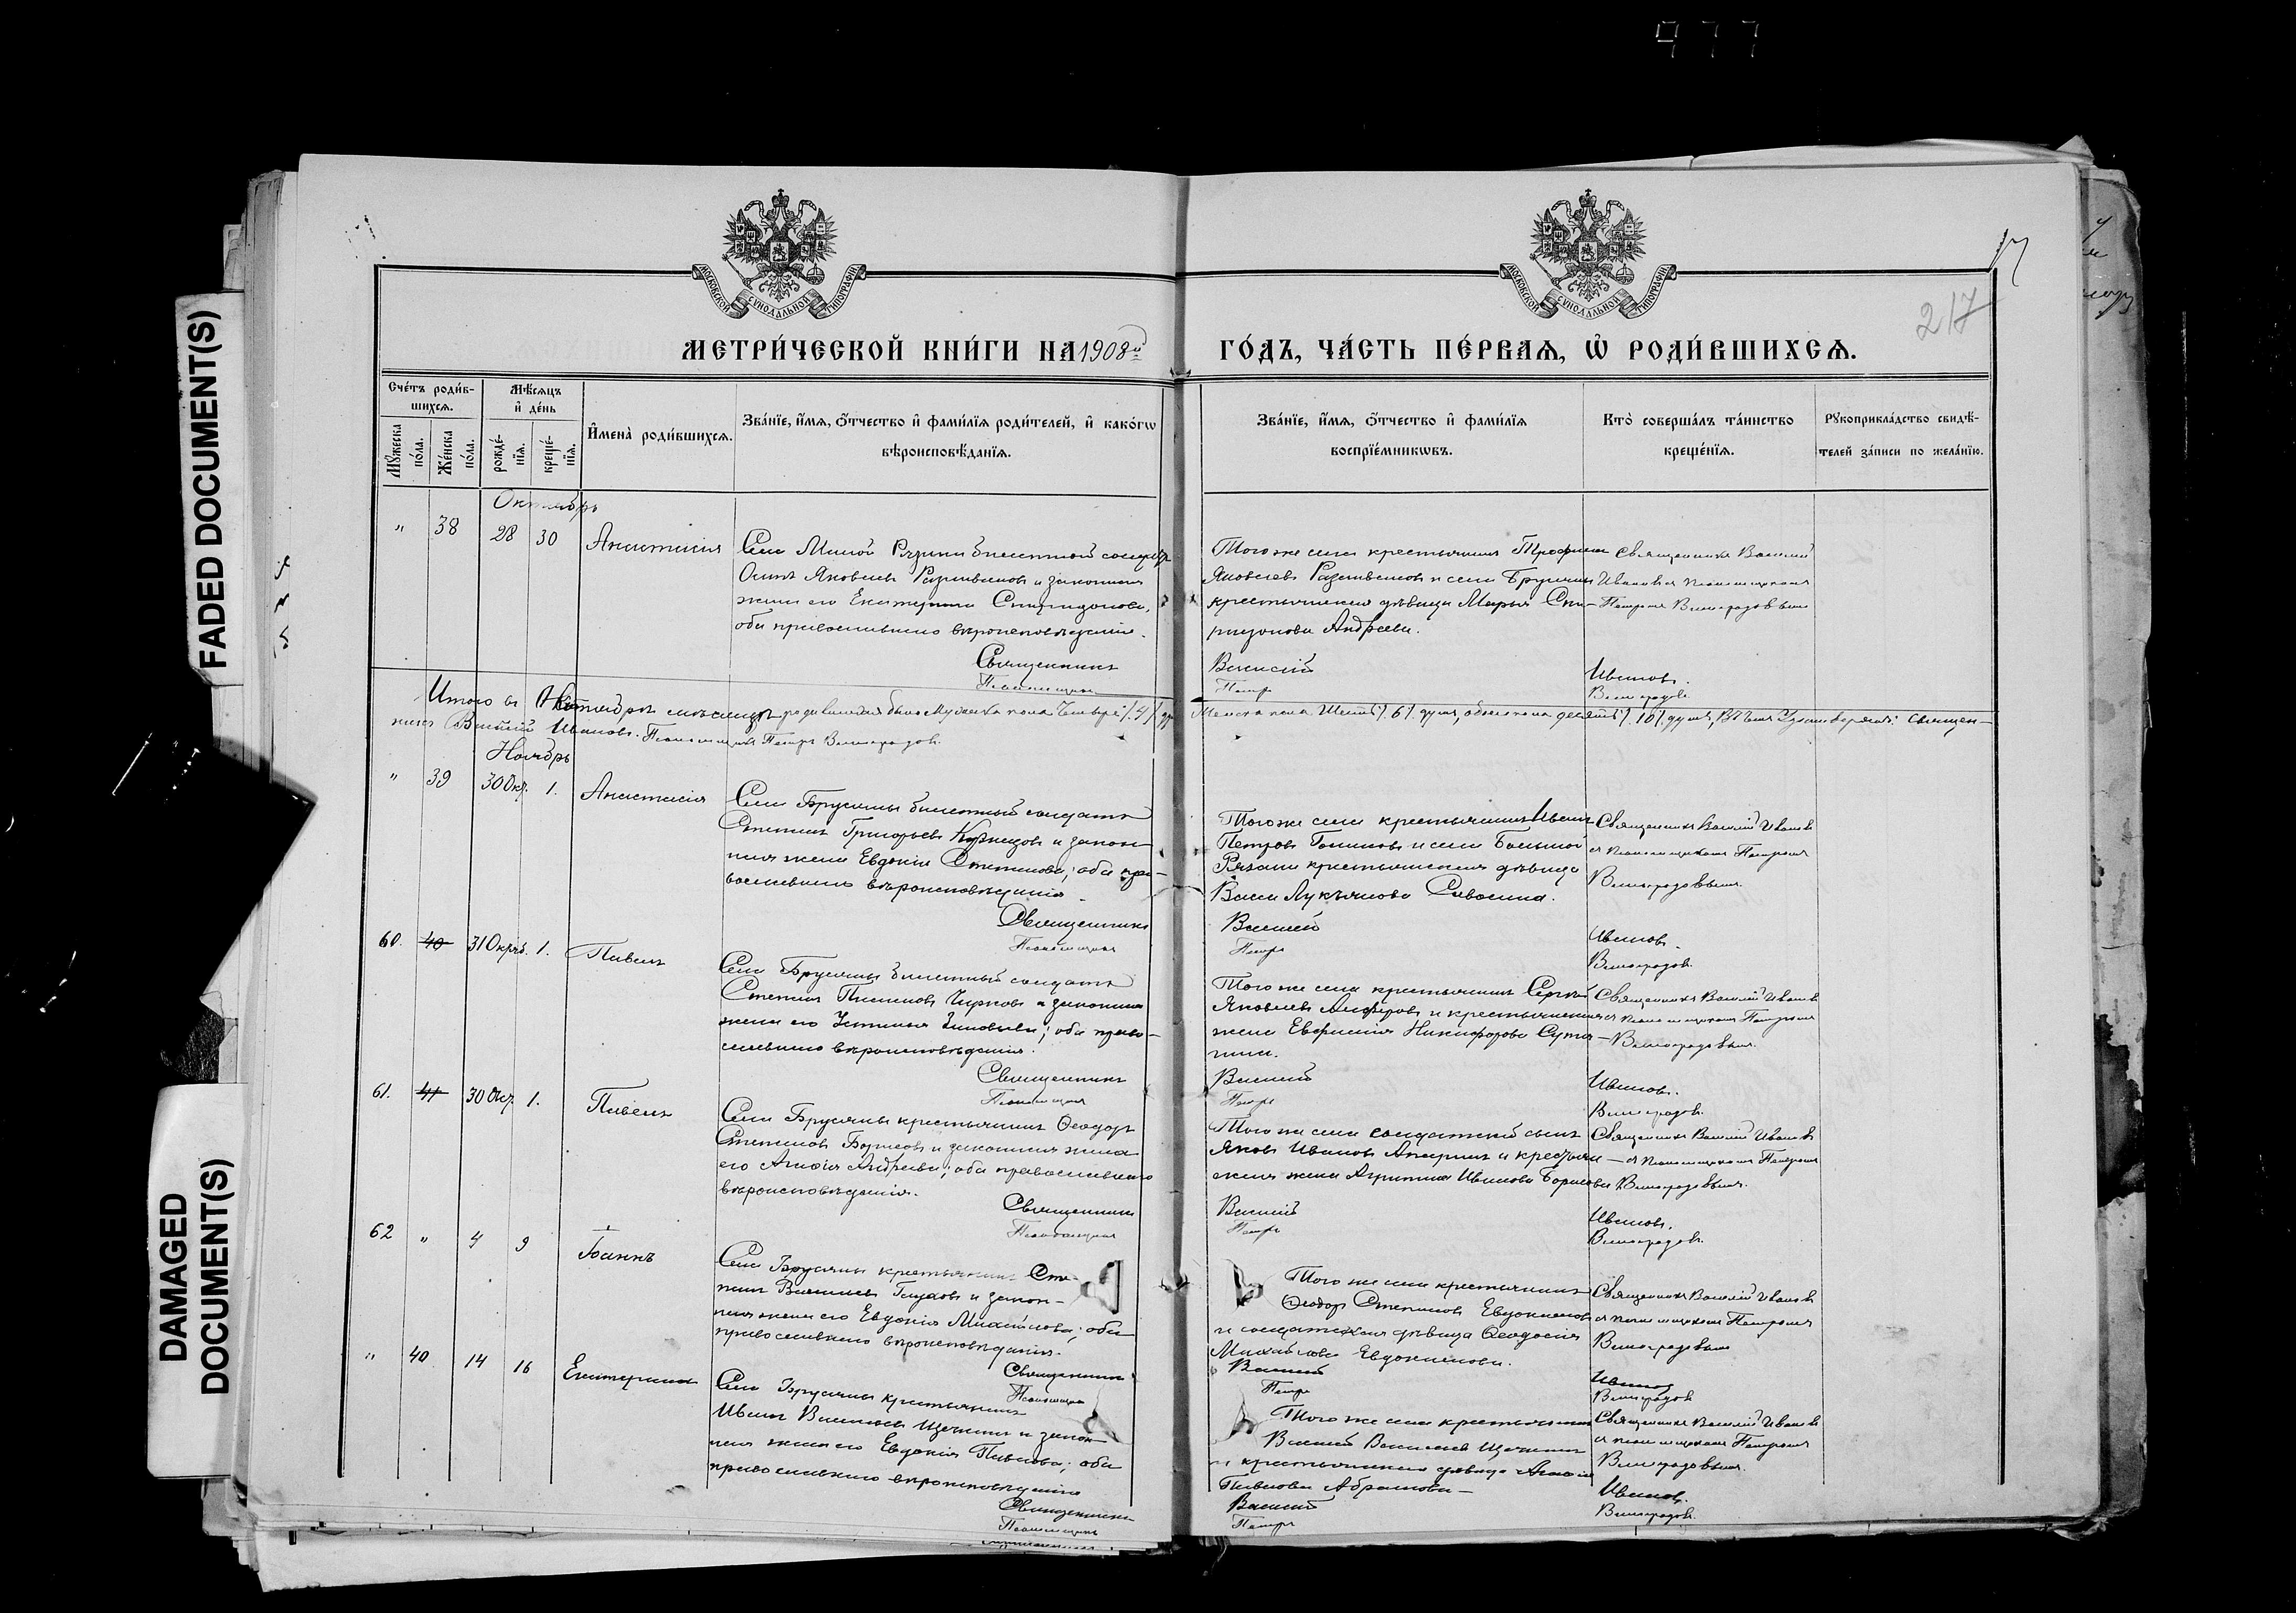 977
FADED DOCUMENT(S)
DAMAGED
DOCUMENT(S)
МОСКОВСКОЙ СУНОДАЛЬНОЙ ТИПОГРАФІИ
МОСКОВСКОЙ СУНОДАЛЬНОЙ ТИПОГРАФІИ
17
217
МЕТРИ́ЧЕСКОЙ КНИ́ГИ НА 1908й
ГО́ДЪ, ЧА́СТЬ ПЕ́РВАЯ, Ѡ҆ РОДИ́ВШИХСЯ.
Сче́тъ роди́в-
шихся.
Мꙋ́жеска по́ла.
Же́нска по́ла.
Мѣ́сяцъ
и҆ де́нь
рожде́-
нїя.
креще́-
нїя.
И҆мена̀ роди́вшихся.
Зва́нїе, и҆́мя, ѻ҆́тчество и҆ фами́лїя роди́телей, и҆ како́гѡ
вѣроисповѣ́данїя.
Зва́нїе, и҆́мя, ѻ҆́тчество и҆ фами́лїя
воспрїе́мникѡвъ.
Кто̀ соверша́лъ та́инство
креще́нїя.
Рꙋкоприкла́дство свидѣ́-
телей за́писи по жела́нїю.
Октябрь
" 38 28 30 Анастасія
Села Малой Рязани билетной солдатъ
Осипъ Яковлевъ Разживинъ и законная
жена его Екатерина Спиридонова,
оба православнаго вѣроисповѣданія.
Священникъ
Псаломщикъ
Того же села крестьянинъ Трофимъ
Яковлевъ и села Брусяны
крестьянская дѣвица Марья Спи-
ридонова Андреева.
Василій
Петръ
Священникъ Василій
Ивановъ съ псаломщикомъ
Петромъ Виноградовымъ
Ивановъ.
Виноградовъ.
Итого въ Октябрѣ мѣсяцѣ родившихся было мужеска пола четыре /.4/.
женска пола шесть /.6/. душъ, обоего пола десять /.10/. душъ, въ чемъ удостовѣряемъ: Священ-
никъ Василій Ивановъ. Псаломщикъ Петръ Виноградовъ.
Ноябрь
" 39 30 Окт. 1. Анастасія
Села Брусяны билетный солдатъ
Степанъ Григорьевъ Кузнецовъ и закон-
ная жена Евдокія Степанова; оба пра-
вославнаго вѣроисповѣданія.
Священникъ
Псаломщикъ
Того же села крестьянинъ Иванъ
Петровъ и села Большой
Рязани крестьянская дѣвица
Васса Лукьянова
Василій
Петръ
Священникъ Василій Ивановъ
съ псаломщикомъ Петромъ
Виноградовымъ.
Ивановъ.
Виноградовъ.
60. 40 31 Октяб. 1. Павелъ
Села Брусяны билетный солдатъ
Степанъ Чирковъ и законная
жена его Устинья Зиновьева; оба право-
славнаго вѣроисповѣданія.
Священникъ
Псаломщикъ
Того же села крестьянинъ Сергѣй
Яковлевъ и крестьянская
жена Евфимія Никифорова
Василій
Петръ
Священникъ Василій Ивановъ
съ псаломщикомъ Петромъ
Виноградовымъ.
Ивановъ.
Виноградовъ.
61. 41 30 Окт. 1. Павелъ
Села Брусяны крестьянинъ Ѳеодоръ
Степановъ Борисовъ и законная жена
его Агаѳія Андреева; оба православнаго
вѣроисповѣданія.
Священникъ
Псаломщикъ
Того же села солдатскій сынъ
Яковъ Ивановъ и крестьян-
ская жена Агрипина Иванова Борисова
Василій
Петръ
Священникъ Василій Ивановъ
съ псаломщикомъ Петромъ
Виноградовымъ.
Ивановъ.
Виноградовъ.
62 " 4 9 Іоаннъ
Села Брусяны крестьянинъ Сте-
панъ Васильевъ Глуховъ и закон-
ная жена его Евдокія Михайлова; оба
православнаго вѣроисповѣданія.
Священникъ
Псаломщикъ
Того же села крестьянинъ
Ѳеодоръ Степановъ Евдокимовъ
и солдатская дѣвица Ѳеодосія
Михайлова Евдокимова.
Василій
Петръ
Священникъ Василій Ивановъ
съ псаломщикомъ Петромъ
Виноградовымъ
Ивановъ
Виноградовъ
" 40 14 16 Екатерина
Села Брусяны крестьянинъ
Иванъ Васильевъ Щекинъ и закон-
ная жена его Евдокія Павлова; оба
православнаго вѣроисповѣданія
Священникъ
Псаломщикъ
Того же села крестьянинъ
Василій Васильевъ Щекинъ
и крестьянская дѣвица
Павлова Абрамова
Василій
Петръ
Священникъ Василій Ивановъ
съ псаломщикомъ Петромъ
Виноградовымъ.
Ивановъ.
Виноградовъ.